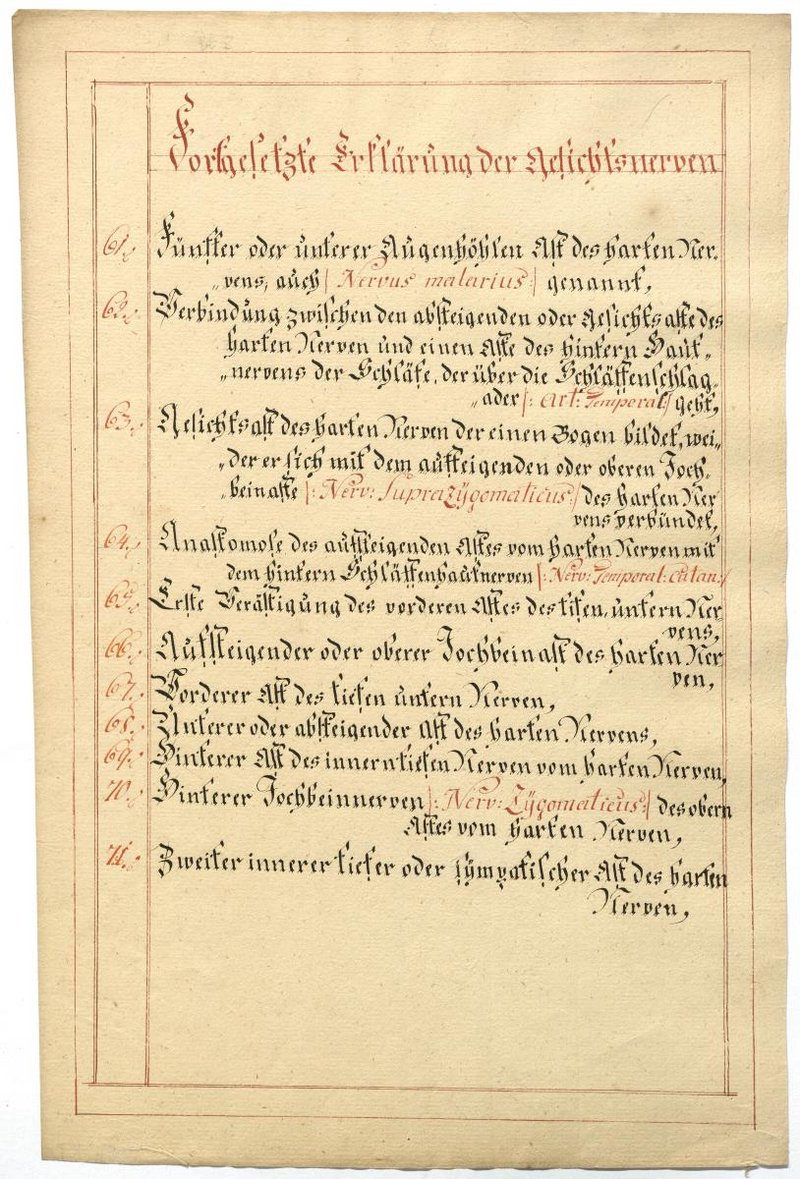 Fortgesetzte Erklärung der Gesichtsnerven
61. Fünfter oder unterer Augenhöhlen Ast des harten Ner-
„vens, auch |: Nervus malarius :| genannt,
62. Verbindung zwischen den absteigenden oder Gesichtsaste des
harten Nerven und einen Aste des hintern Haut„
„nervens der Schläfe, der über die Schläffenschlag„
„ader |: Art: Temporal :| geht,
63. Gesichtsast des harten Nerven der einen Bogen bildet, wei„
„der er sich mit dem aufsteigenden oder oberen Joch„
„beinaste |: Nerv: Suprazÿgomaticus :| des harten Ner
vens verbündet,
64. Anastomose des aufsteigenden Astes vom harten Nerven mit
dem hintern Schläffenhautnerven |: Nerv: Temporat: cutan: /
65. Erste Verästigung des vorderen Astes des tifen, untern Ner
vens,
66. Aufsteigender oder oberer Jochbeinast des harten Ner
ven,
67. Vorderer Ast des tiefen untern Nerven,
68. Unterer oder absteigender Ast des harten Nervens,
69. Hinterer Ast des innern tiefen Nerven vom harten Nerven,
70. Hinterer Jochbeinnerven |: Nerv: Zÿgomaticus :| des obern
Astes vom harten Nerven,
71. Zweiter innerer tiefer oder sÿmpatischer Ast des harten
Nerven,